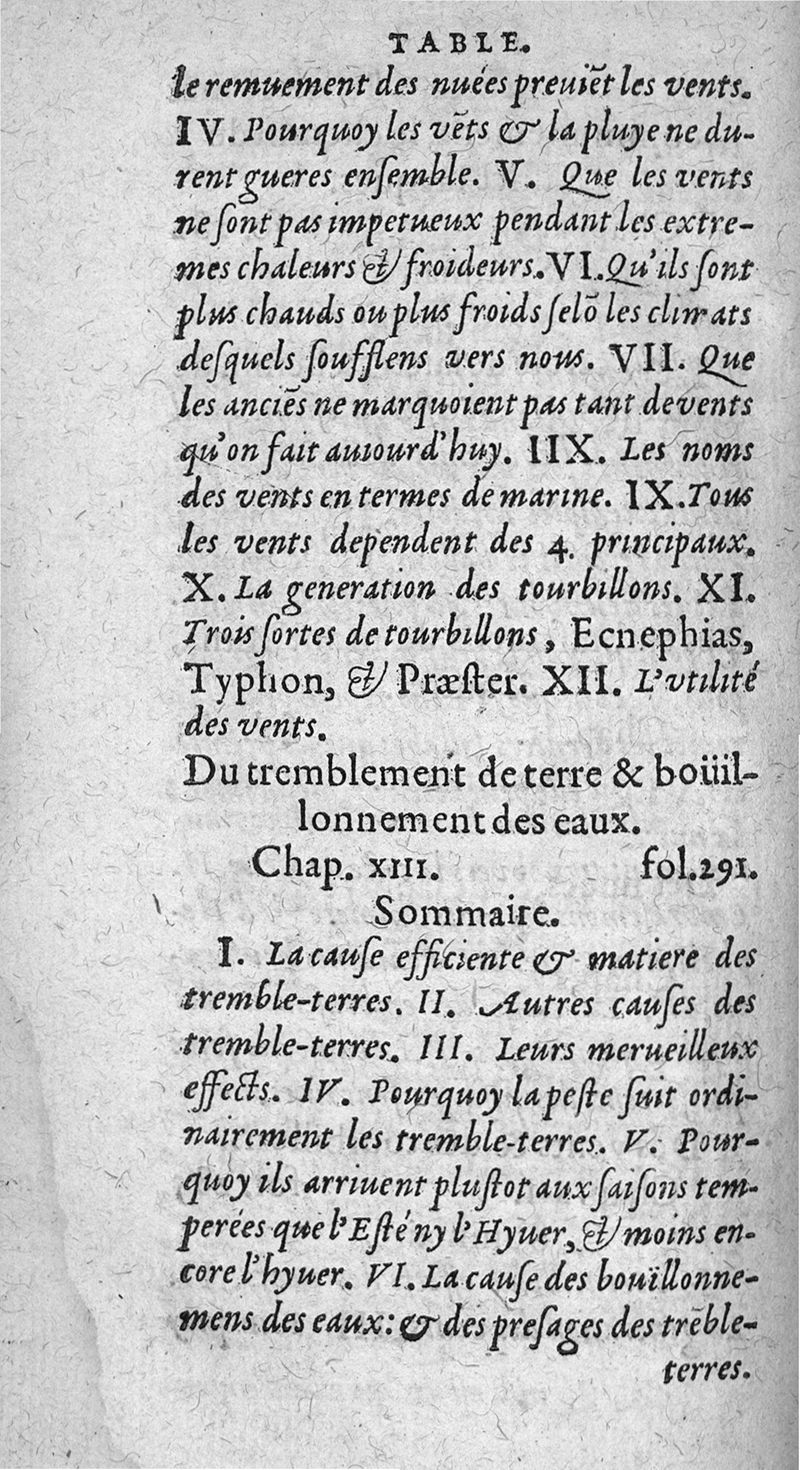 TABLE.
le remuement des nuées preuiẽt les vents.
IV. Pourquoy les vẽts & la pluye ne du-
rent gueres enſemble. V. Que les vents
ne ſont pas impetueux pendant les extre-
mes chaleurs & froideurs. VI. Qu'ils ſont
plus chauds ou plus froids ſelõ les climats
deſquels ſoufflens vers nous. VII. Que
les anciẽs ne marquoient pas tant de vents
qu'on fait auiourd'huy. IIX. Les noms
des vents en termes de marine. IX. Tous
les vents dependent des 4. principaux.
X. La generation des tourbillons. XI.
Trois ſortes de tourbillons, Ecnephias,
Typhon, & Præſter. XII. L'vtilité
des vents.
Du tremblement de terre & boüil-
lonnement des eaux.
Chap. XIII. fol.291.
Sommaire.
I. La cauſe efficiente & matiere des
tremble-terres. II. Autres cauſes des
tremble-terres. III. Leurs merueilleux
effects. IV. Pourquoy la peſte ſuit ordi-
nairement les tremble-terres. V. Pour-
quoy ils arriuent pluſtot aux ſaiſons tem-
perées que l'Eſté ny l'Hyuer, & moins en-
core l'hyuer. VI. La cauſe des bouïllonne-
mens des eaux: & des preſages des trẽble-
terres.